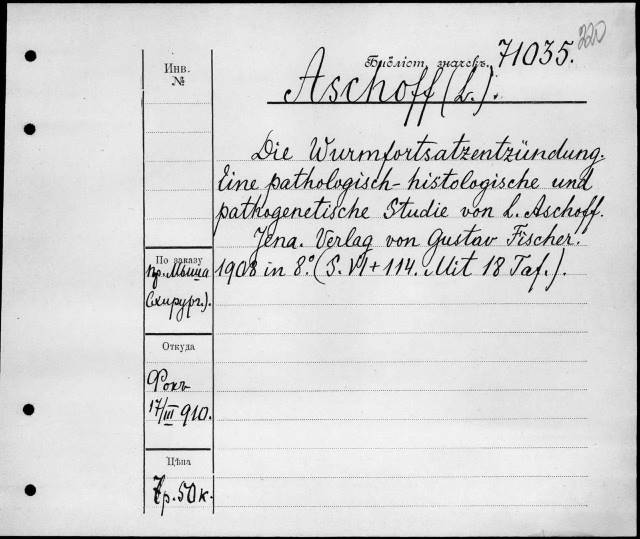 220
Библіот. значекъ. 71035.
Инв.
№
Aschoff (L.).
Die Wurmfortsatzentzündung.
Eine pathologisch-histologische und
pathogenetische Studie von L. Aschoff.
Jena. Verlag von Gustav Fischer.
1908 in 8.° (S. VI + 114. Mit 18 Taf.).
По заказу
пр. Мыша
(хирург.).
Откуда
Фокъ
17/III 910.
Цѣна
р. 50 к.